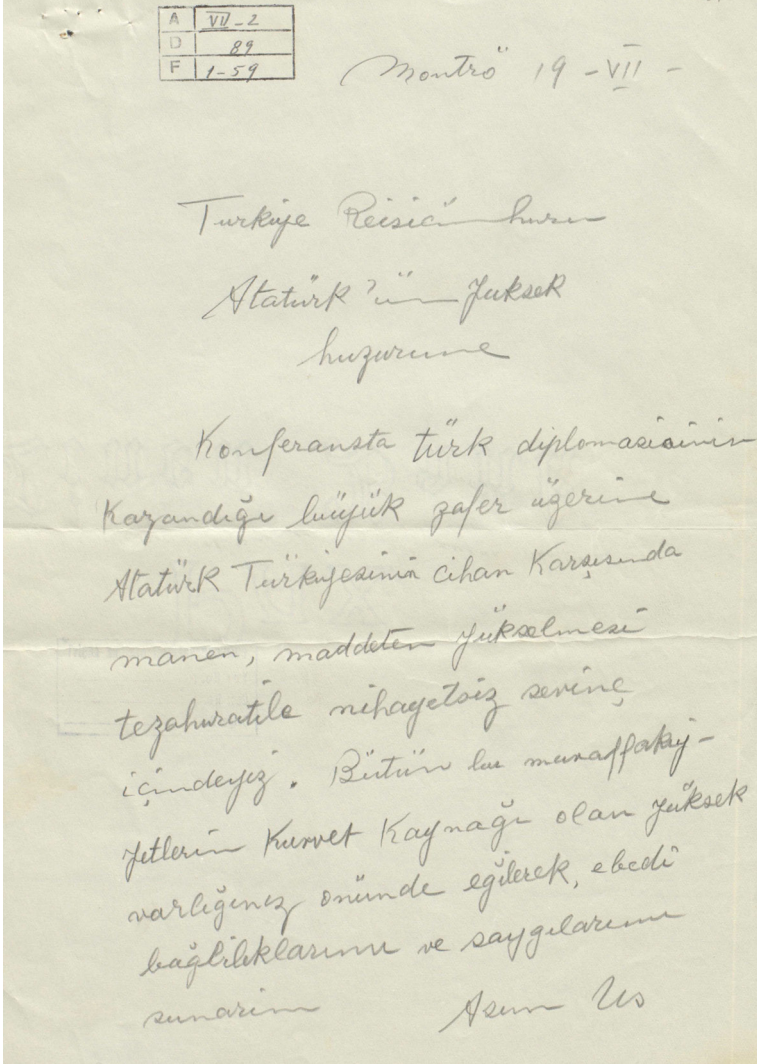 A VII-2
D 89
F 1-59
Montrö 19-VII-
Turkiye Reisicümhuru
Atatürk'ün Yuksek
huzuruna
Konferansta türk diplomasisinin
Kazandığı büyük zafer üzerine
Atatürk Türkiyesinin cihan Karşısında
manen, maddeten yükselmesi
tezahuratile nihayetsiz sevinç
içindeyiz. Bütün bu muvaffakiy-
yetlerin Kuvvet Kaynağı olan yüksek
varlığınız önünde eğilerek, ebedî
bağlılıklarımı ve saygılarımı
sunarım Asım Us